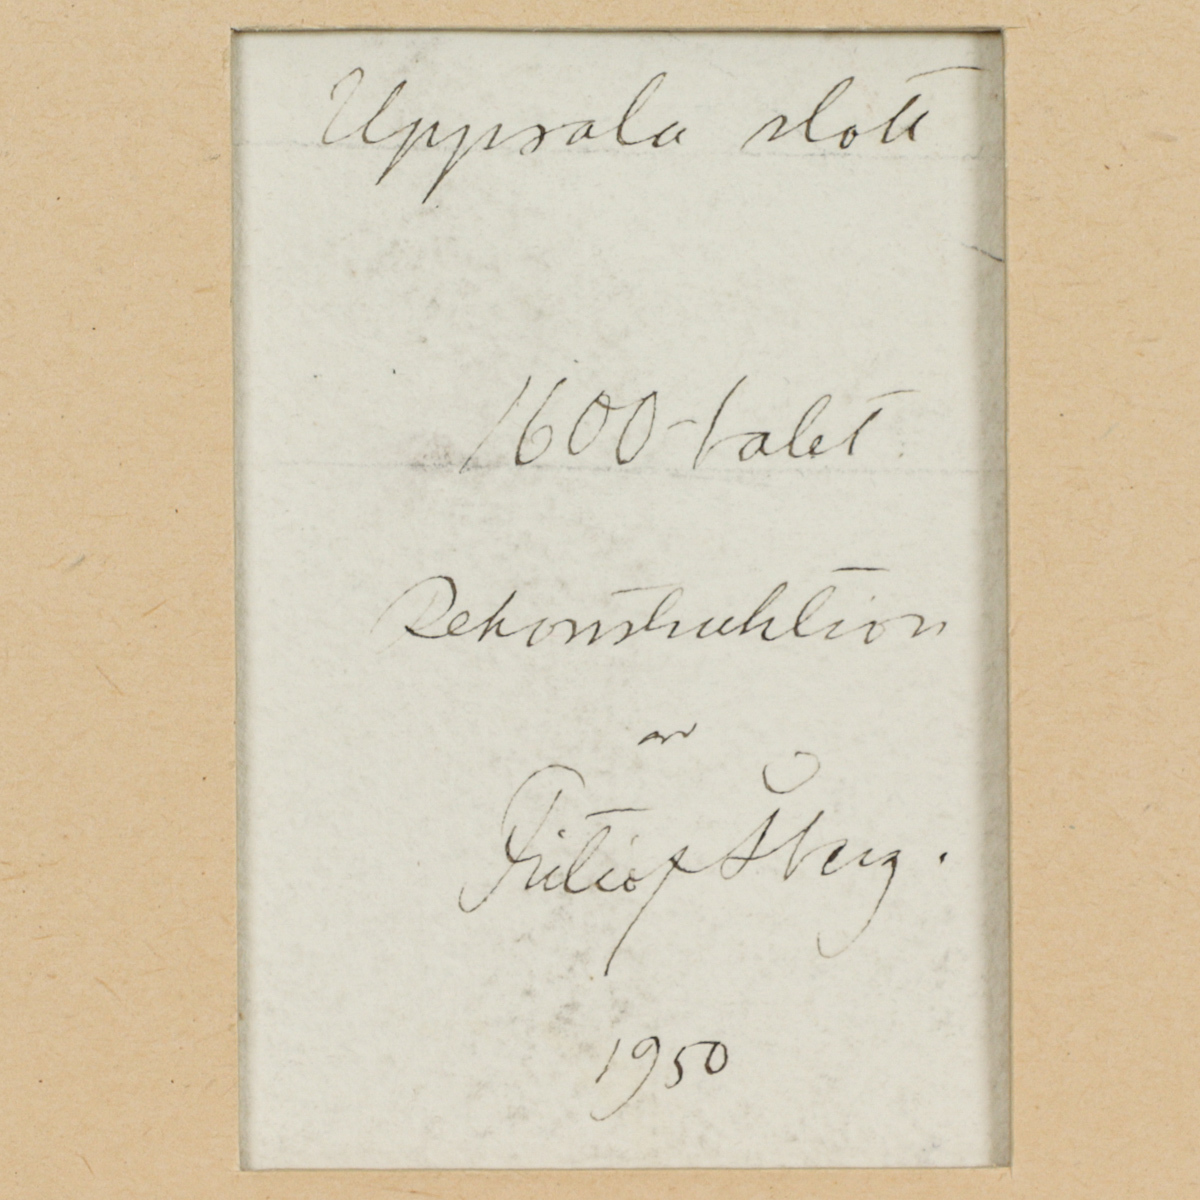 Uppsala slott
1600-talet
Rekonstruktion
av
Fritiof Åberg.
1950